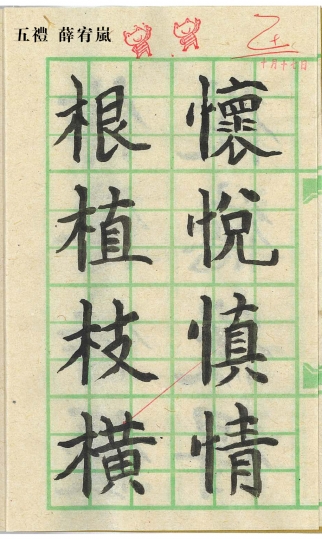 五禮 薛宥嵐
懷悅慎情
根植枝橫
十月十七日